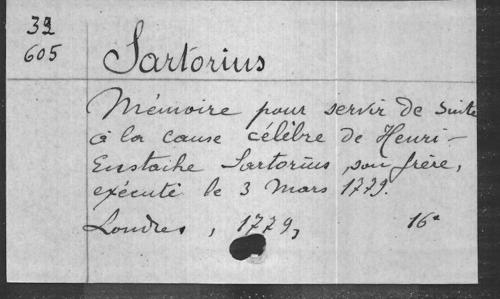 32
605
Sartorius
Mémoire pour servir de suite
à la cause célèbre de Henri-
Eustache Sartorius, son frère,
exécuté le 3 Mars 1779.
Londres, 1779, 16°